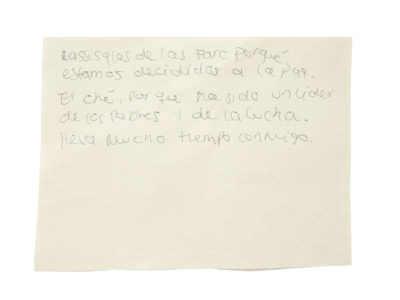 Las siglas de las Farc porqué
estamos decididos a la paz.
El ché, porque ha sido un lider
de los pobres y de la lucha.
lleva mucho tiempo conmigo.